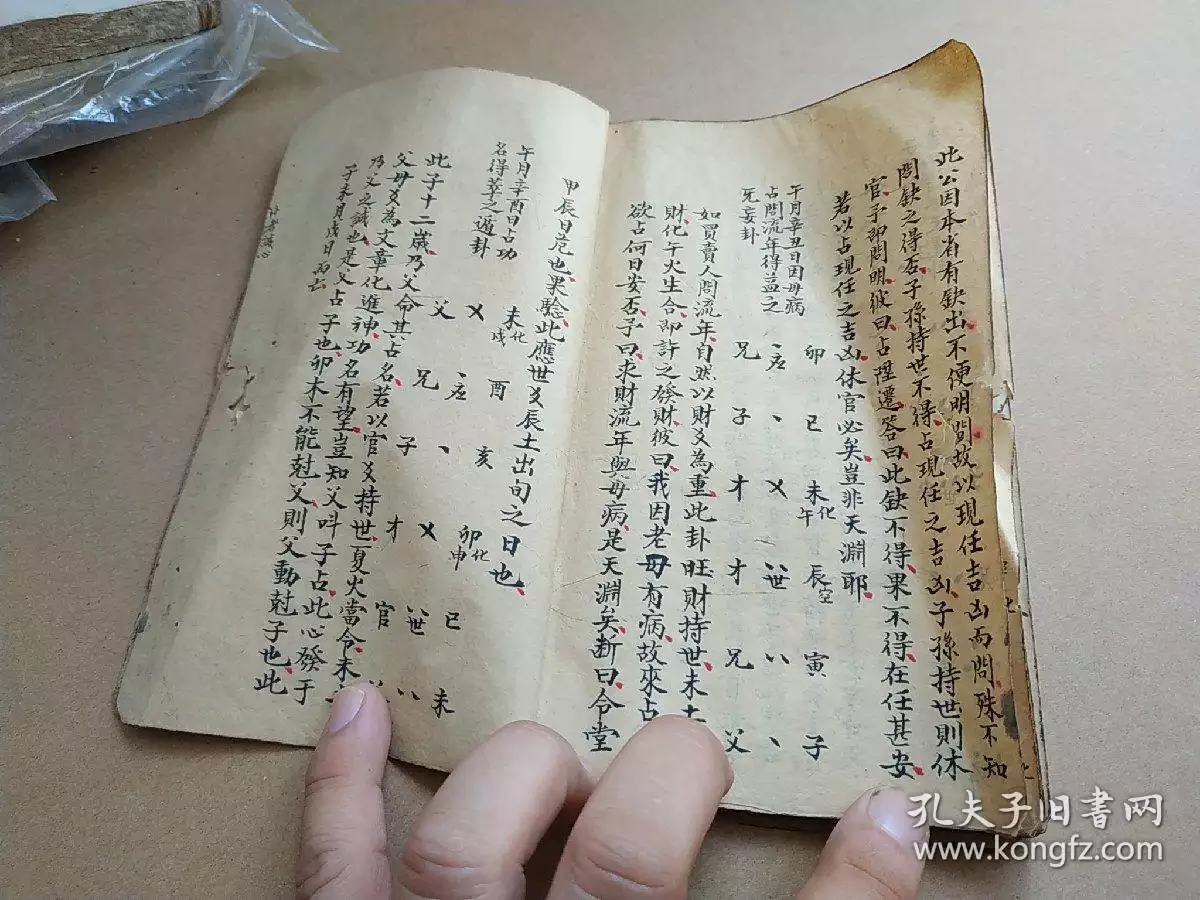 此公因本省有缺出不便明問故以現任吉凶而問殊不知
問缺之得否子孫持世不得占現任之吉凶子孫持世則休
官予即問明彼曰占陞遷答曰此缺不得果不得在任甚安
若以占現任之吉凶休官必矣豈非天淵耶
午月辛丑日因母病
占問流年得益之
无妄卦
卯 巳 未化午 辰空 寅 子
應 世
兄 子 才 才 兄 父
如買賣人問流年自然以財爻為重此卦旺財持世未土
財化午火生合即許之發財彼曰我因老母有病故來占
欲占何日安否予曰求財流年與母病是天淵矣断曰令堂
甲辰日危也果驗此應世爻辰土出旬之日也
午月辛酉日占功
名得萃之遁卦
未化戌 酉 亥 卯化申 巳 未
應 世
父 兄 子 才 官
此子十二歲乃父命其占名若以官爻持世夏火當令未
父母爻為文章化進神功名有望豈知父呌子占此心發于
乃父之誠也是父占子也卯木不能尅父則父動尅子也此
子未月戊日而亡
孔夫子旧书网
www.kongfz.com